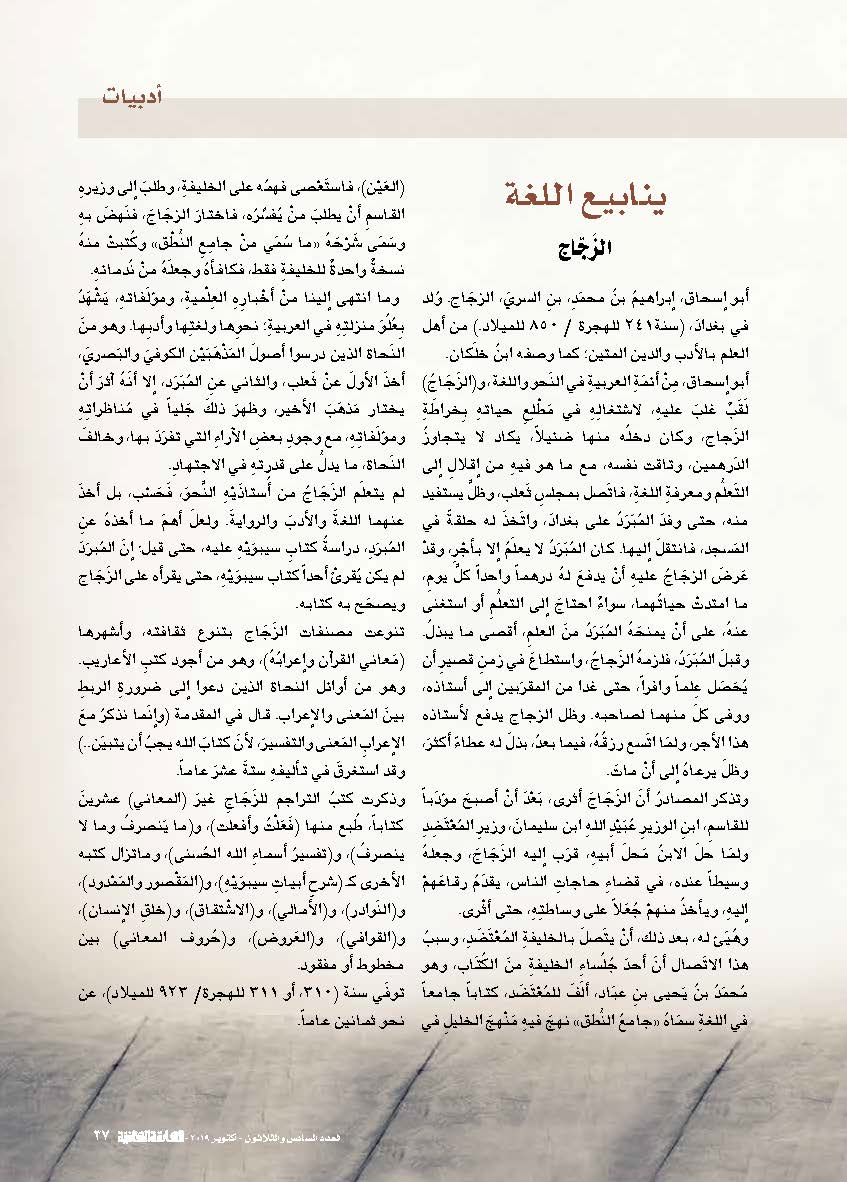 أدبيات
ينابيع اللغة
الزّجّاج
أبو إسحاق، إبراهيمُ بنُ محمّدِ، بنِ السريّ، الزجّاج. وُلد
في بغدادَ، (سنة ٢٤١ للهجرة / ٨٥٠ للميلاد.) من أهل
العلم بالأدب والدين المتين؛ كما وصفه ابنُ خلّكان.
أبو إسحاق، مِنْ أئمّةِ العربية في النّحو واللغة، و(الزّجّاجُ)
لَقَبٌ غلبَ عليهِ، لاشتغالِهِ في مَطْلعِ حياتهِ بِخراطةِ
الزّجاج، وكان دخلُه منها ضئيلاً، يكاد لا يتجاوزُ
الدّرهمين، وتاقت نفسه، مع ما هو فيهِ من إقلالٍ إلى
التّعلّم ومعرفةِ اللغةِ، فاتّصل بمجلسِ ثعلب، وظلّ يستفيد
منه، حتى وفدَ المُبَرّدُ على بغدادَ، واتّخذَ له حلقةً في
المَسجد، فانتقلَ إليها. كان المُبَرّدُ لا يعلّمُ إلا بأجْرٍ، وقدْ
عَرضَ الزجاجُ عليهِ أنْ يدفعَ لهُ درهماً واحداً كلَّ يومٍ،
ما امتدتْ حياتُهما، سواءٌ احتاجَ إلى التعلُّمِ أو استغنى
عنهُ، على أنْ يمنحَهُ المُبَرّدُ منَ العلمِ، أقصى ما يبذلُ.
وقبلَ المُبَرّدُ، فلزمهُ الزجاجُ، واستطاعَ في زمنٍ قصيرٍ أن
يُحَصّل عِلماً وافراً، حتى غدا من المقرّبين إلى أستاذه،
ووفى كلّ منهما لصاحبه. وظل الزجاج يدفع لأستاذه
هذا الأجر، ولمّا اتّسع رزقُهُ، فيما بعدُ، بذلَ له عطاءً أكثرَ،
وظلّ يرعاهُ إلى أنْ ماتَ.
وتذكر المصادرُ أنّ الزّجّاجَ أثرى، بَعْدَ أنْ أصبحَ مؤدّباً
للقاسم، ابنِ الوزيرِ عُبَيْدِ اللهِ ابن سليمانَ، وزيرِ المُعْتَضد
ولمّا حلّ الابنُ مَحلّ أبيهِ، قرّب إليه الزجّاجَ، وجعلهُ
وسيطاً عنده، في قضاءِ حاجاتِ الناس، يقدّمُ رقاعَهمْ
إليهِ، ويأخذُ منهمْ جُعْلاً على وساطتِهِ، حتى أثْرى.
وهُيّئ له، بعد ذلك، أنْ يتّصلَ بالخليفةِ المُعْتَضد، وسببُ
هذا الاتّصال أنّ أحدَ جُلساءِ الخليفةِ منَ الكُتّاب، وهو
مُحمّدُ بنُ يَحيى بنِ عبّاد، ألّفَ للمُعْتَضد، كتاباً جامعاً
في اللغةِ سمّاهُ «جامعُ النُّطق» نهجَ فيهِ مَنْهجَ الخليلِ في
(العَيْن)، فاستَعْصى فهمُه على الخليفةِ، وطلبَ إلى وزيرهِ
القاسمِ أنْ يطلبَ منْ يُفسّرُه، فاختارَ الزجّاجَ، فنَهضَ بهِ
وسَمّى شَرْحَهُ «ما سُمّي منْ جامعِ النُّطْق» وكُتبتْ منهُ
نسخةٌ واحدةٌ للخليفةِ فقط، فكافأهُ وجعلَهُ منْ نُدمائهِ.
وما انتهى إلينا منْ أخْبارهِ العلْميةِ، ومؤلّفاتهِ، يَشْهَدُ
بِعُلُوّ منزلتِهِ في العربيةِ؛ نحوِها ولغتِها وأدبِها. وهو منَ
النّحاة الذين درسوا أصولَ المَذْهَبَيْن الكوفيّ والبَصريّ،
أخذَ الأولَ عنْ ثَعلب، والثاني عنِ المُبَرّد، إلا أنّهُ آثرَ أنْ
يختار مَذهَبَ الأخير، وظهرَ ذلكَ جَلياً في مُناظراتِهِ
ومؤلّفاتِهِ، مع وجودِ بعضِ الآراءِ التي تفرّدَ بها، وخالفَ
النّحاة، ما يدلُّ على قدرتِهِ في الاجتهادِ.
لم يتعلّم الزّجّاجُ من أستاذَيْهِ النّحوَ، فَحَسْب، بل أخذَ
عنهما اللغةَ والأدبَ والروايةَ. ولعلّ أهمّ ما أخذهُ عنِ
المُبَردِ، دراسةُ كتابِ سيبوَيْهِ عليه، حتى قيل: إنّ المُبرّدَ
لم يكن يُقرئُ أحداً كتاب سيبوَيْهِ، حتى يقرأه على الزّجّاج
ويصحّح به كتابه.
تنوعت مصنفات الزّجّاج بتنوع ثقافته، وأشهرها
(مَعاني القرآن وإعرابُهُ)، وهو من أجود كتبِ الأعاريب.
وهو من أوائل النحاة الذين دعوا إلى ضرورةِ الربطِ
بينَ المَعنى والإعراب. قال في المقدمة (وإنّما نذكرُ معَ
الإعرابِ المَعنى والتفسيرَ، لأنّ كتابَ الله يجبُ أن يتبيّن..)
وقد استغرقَ في تأليفهِ ستةَ عشرَ عاماً.
وذكرت كتبُ التراجم للزّجّاجِ غيرَ (المعاني) عشرينَ
كتاباً، طُبع منها (فَعَلْتُ وأفعلت)، و(ما يَنصرفُ وما لا
ينصرفُ)، و(تفسيرُ أسماءِ الله الحُسنى)، وماتزال كتبه
الأخرى كـ (شرحِ أبياتِ سيبوَيْهِ)، و(المَقْصورِ والمَمْدودِ)،
و(النّوادرِ)، و(الأمالي)، و(الاشْتقاق)، و(خلقِ الإنسان)،
و(القوافي)، و(العَروض)، و(حُروف المعاني) بين
مخطوط أو مفقود.
توفّي سنة (٣١٠، أو ٣١١ للهجرة/ ٩٢٣ للميلاد)، عن
نحو ثمانين عاماً.
العدد السادس والثلاثون - أكتوبر ٢٠١٩ - الشارقة الثقافية ٣٧